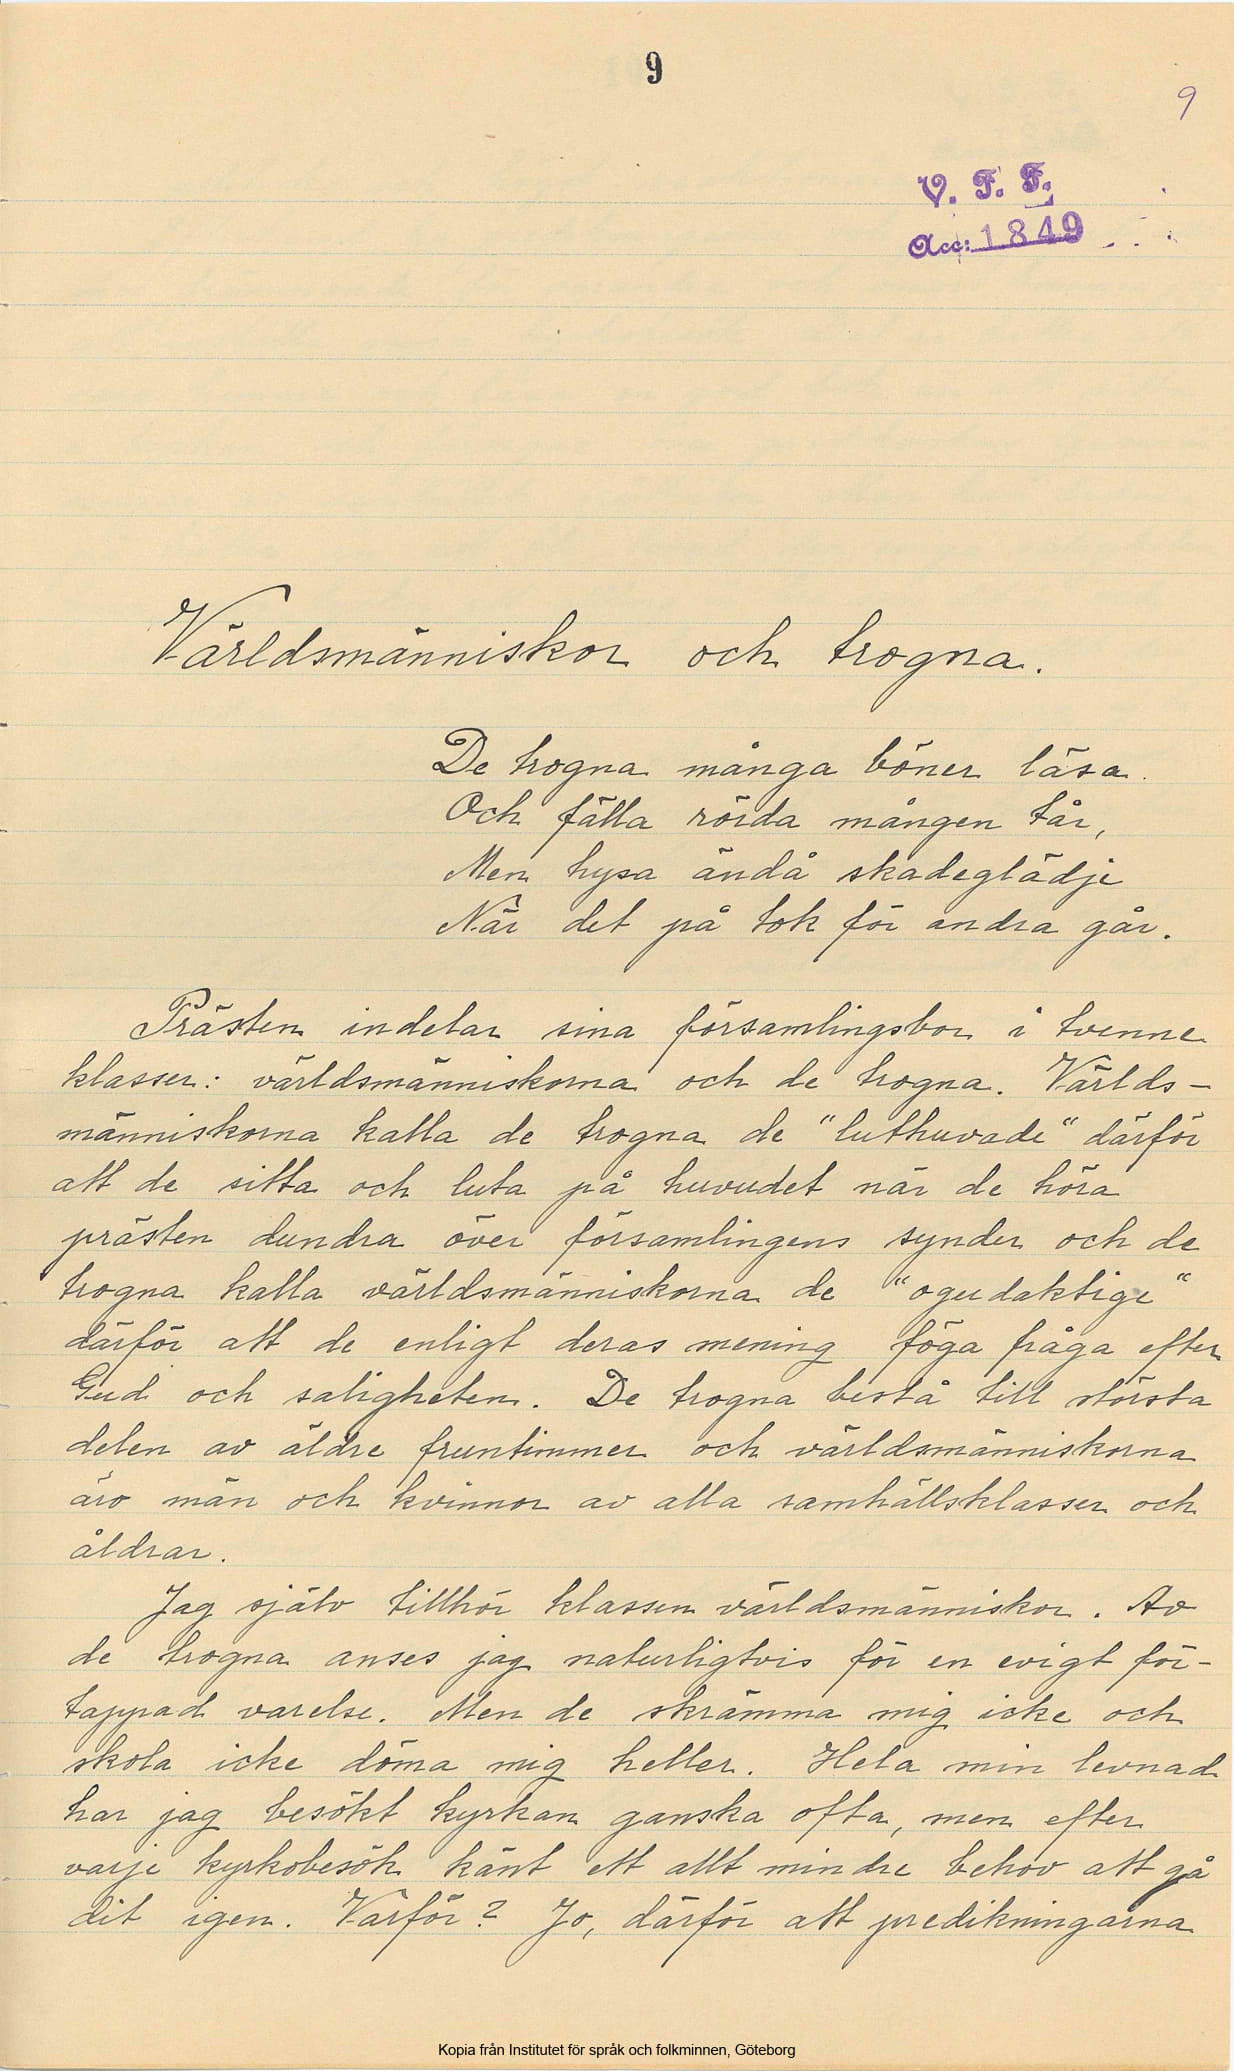 9
9
V. F. F.
Acc: 1849
Världsmänniskor och trogna.
De trogna många böner läsa.
Och fälla rörda mången tår,
Men hysa ändå skadeglädje
När det på tok för andra går.
Prästen indelar sina församlingsbor i tvenne
klasser: världsmänniskorna och de trogna. Världs-
människorna kalla de trogna de "luthuvade" därför
att de sitta och luta på huvudet när de höra
prästen dundra över församlingens synder och de
trogna kalla världsmänniskorna de "ogudaktige"
därför att de enligt deras mening föga fråga efter
Gud och saligheten. De trogna bestå till största
delen av äldre fruntimmer och världsmänniskorna
äro män och kvinnor av alla samhällsklasser och
åldrar.
Jag själv tillhör klassen världsmänniskor. Av
de trogna anses jag naturligtvis för en evigt för-
tappad varelse. Men de skrämma mig icke och
skola icke döma mig heller. Hela min levnad
har jag besökt kyrkan ganska ofta, men efter
varje kyrkobesök känt ett allt mindre behov att gå
dit igen. Varför? Jo, därför att predikningarna
Kopia från Institutet för språk och folkminnen, Göteborg